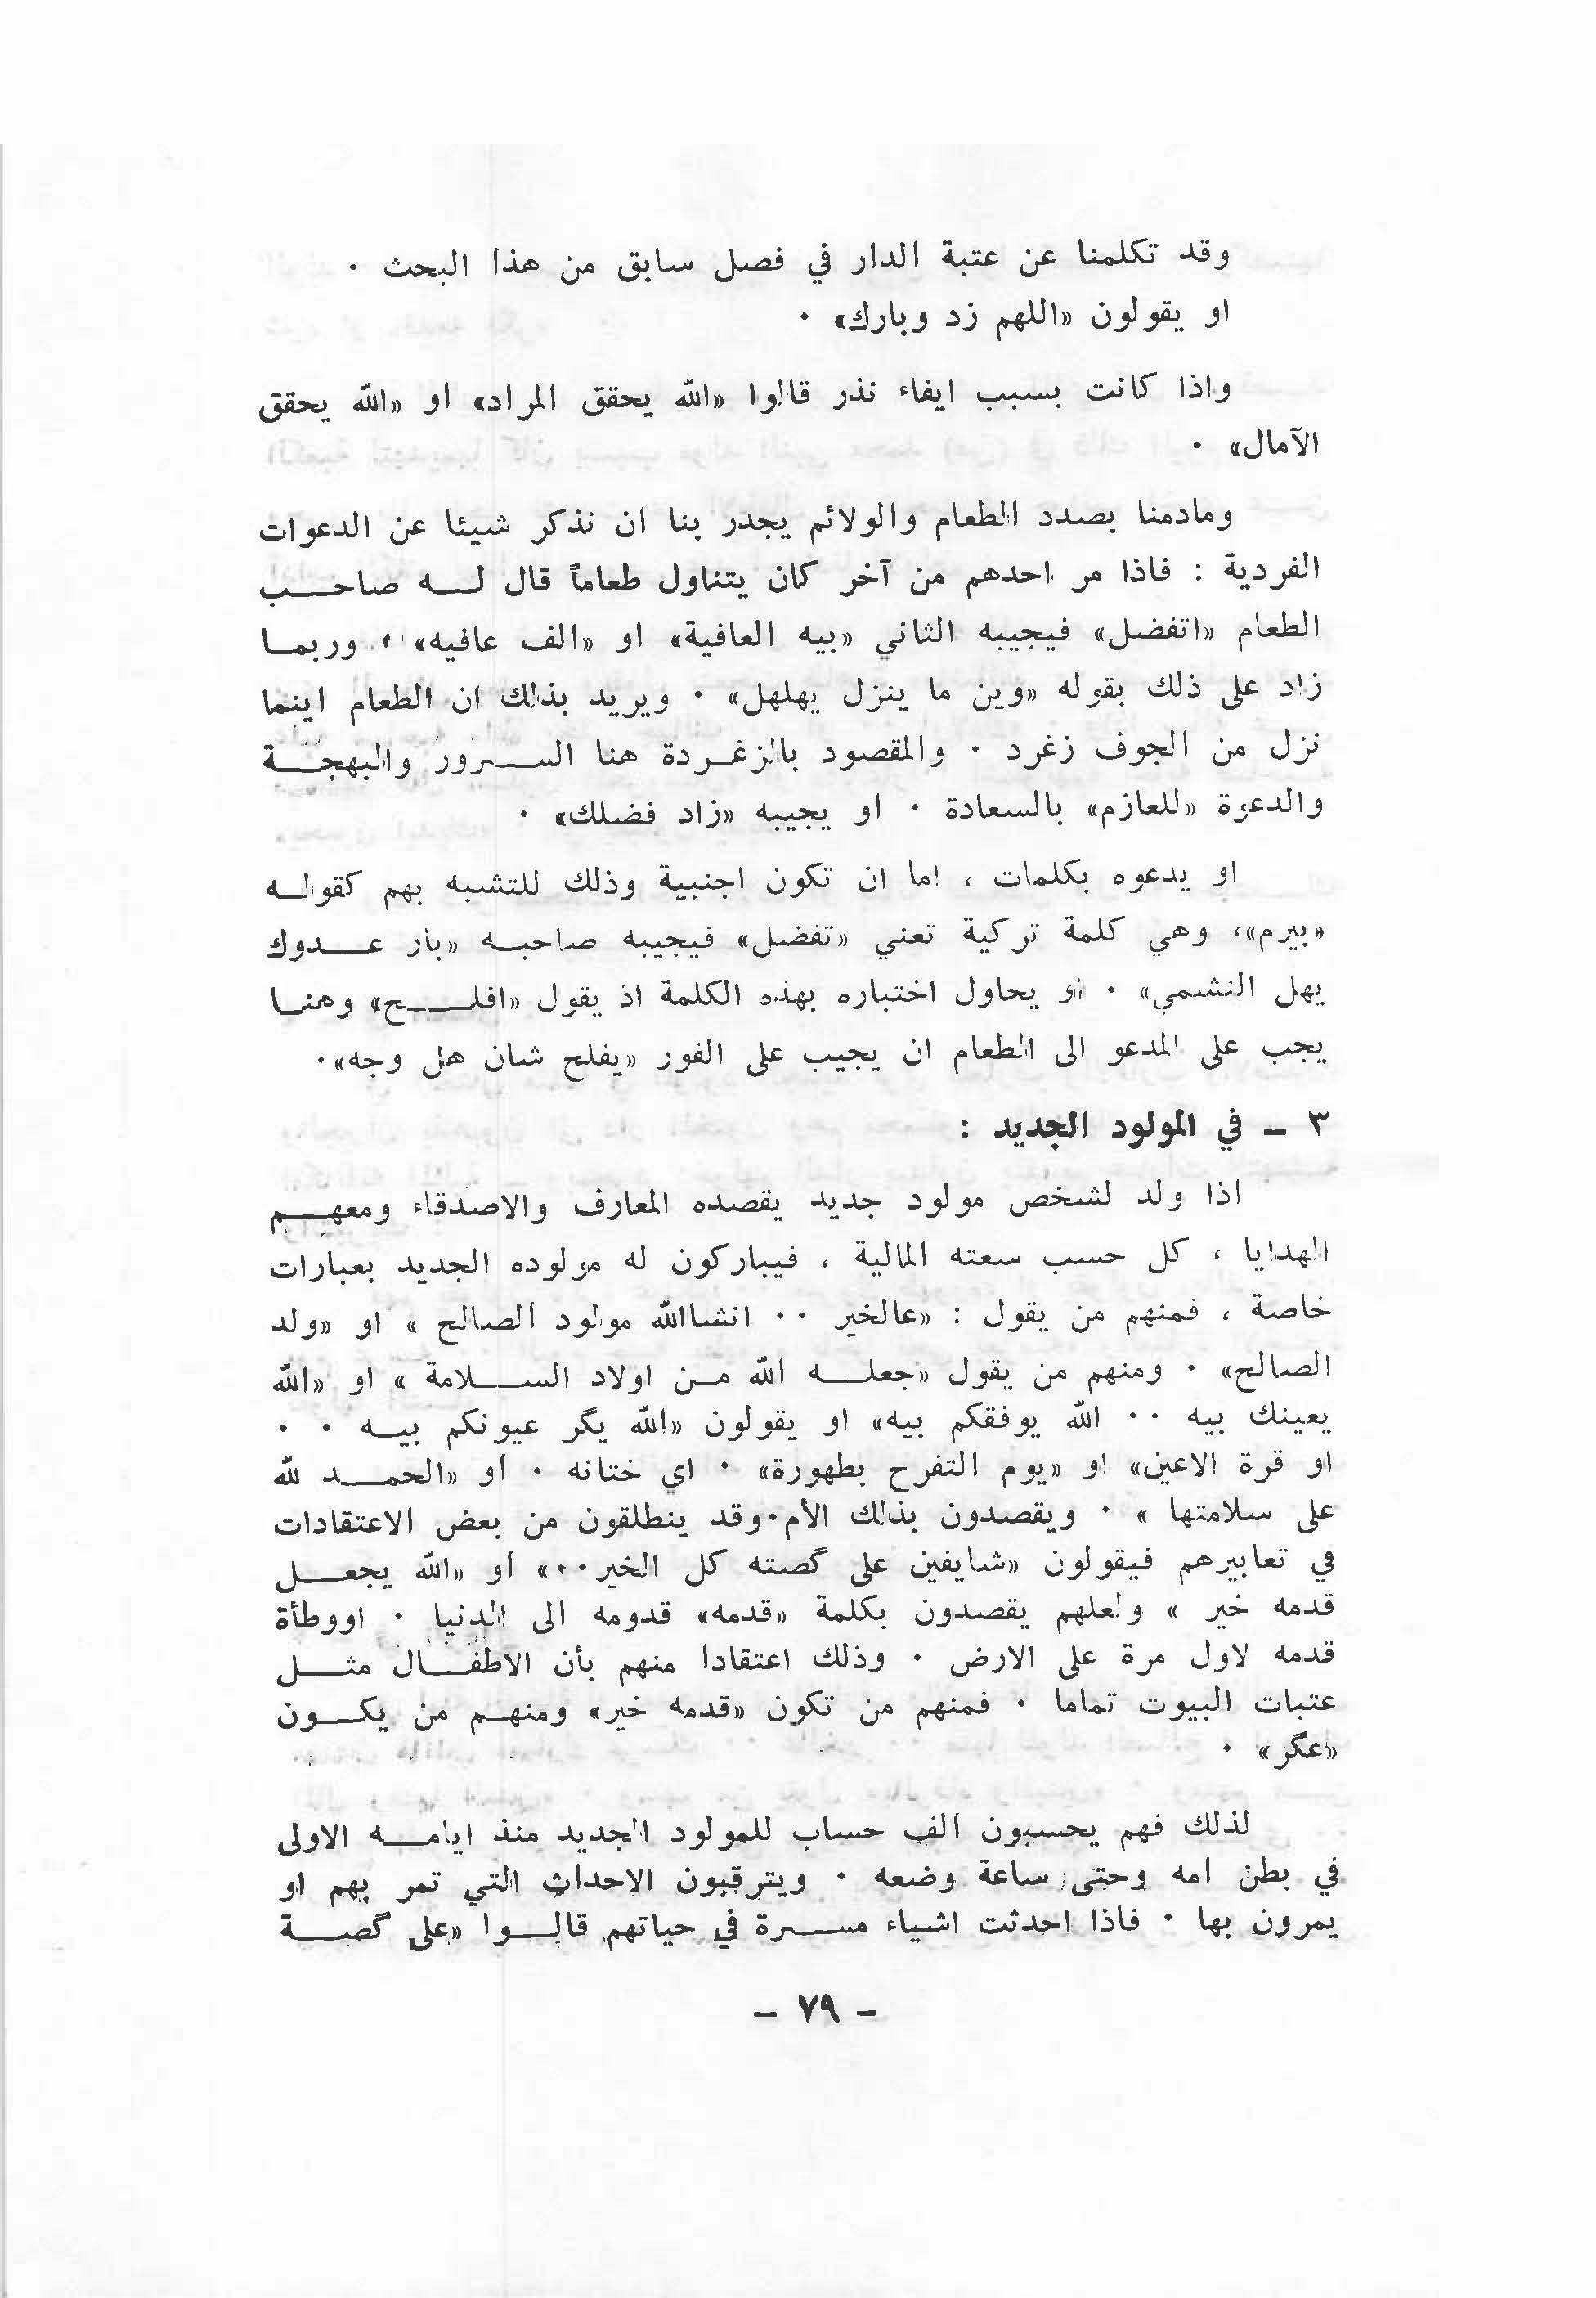 وقد تكلمنا عن عتبة الدار في فصل سابق من هذا البحث ٠
او يقولون «اللهم زد وبارك» ٠
واذا كانت بسبب ايفاء نذر قالوا «الله يحقق المراد» او «الله يحقق
الآمال» ٠
ومادمنا بصدد الطعام والولائم يجدر بنا ان نذكر شيئا عن الدعوات
الفردية : فاذا مر احدهم من آخر كان يتناول طعاماً قال لـه صاحب
الطعام «اتفضل» فيجيبه الثاني «بيه العافية» او «الف عافيه» ، وربما
زاد على ذلك بقوله «وين ما ينزل يهلهل» ٠ ويريد بذلك ان الطعام اينما
نزل من الجوف زغرد ٠ والمقصود بالزغردة هنا السرور والبهجة
والدعوة «للعازم» بالسعادة ٠ او يجيبه «زاد فضلك» ٠
او يدعوه بكلمات ، اما ان تكون اجنبية وذلك للتشبه بهم كقوله
«بيرم»، وهي كلمة تركية تعني «تفضل» فيجيبه صاحبه «بار عدوك
يهل النشمي» ٠ او يحاول اختباره بهذه الكلمة اذ يقول «افلح» وهنا
يجب على المدعو الى الطعام ان يجيب على الفور «يفلح شان هل وجه»٠
٣ ــ في المولود الجديد :
اذا ولد لشخص مولود جديد يقصده المعارف والاصدقاء ومعهم
الهدايا ، كل حسب سعته المالية ، فيباركون له مولوده الجديد بعبارات
خاصة ، فمنهم من يقول : «عالخير ٠٠ انشاالله مولود الصالح » او «ولد
الصالح» ٠ ومنهم من يقول «جعله الله من اولاد السلامة » او «الله
يعينك بيه ٠٠ الله يوفقكم بيه» او يقولون «الله يگر عيونكم بيه ٠ ٠
او قرة الاعين» او «يوم التفرح بطهورة» ٠ اي ختانه ٠ او «الحمد لله
على سلامتها » ٠ ويقصدون بذلك الأم٠وقد ينطلقون من بعض الاعتقادات
في تعابيرهم فيقولون «شايفين على گصته كل الخير٠٠» او «الله يجعل
قدمه خير » ولعلهم يقصدون بكلمة «قدمه» قدومه الى الدنيا ٠ اووطأة
قدمه لاول مرة على الارض ٠ وذلك اعتقادا منهم بأن الاطفال مثل
عتبات البيوت تماما ٠ فمنهم من تكون «قدمه خير» ومنهم من يكون
«عگز» ٠
لذلك فهم يحسبون الف حساب للمولود الجديد منذ ايامه الاولى
في بطن امه وحتى ساعة وضعه ٠ ويترقبون الاحداث التي تمر بهم او
يمرون بها ٠ فاذا احدثت اشياء مسرة في حياتهم قالوا «على گصة
– ٧٩ –